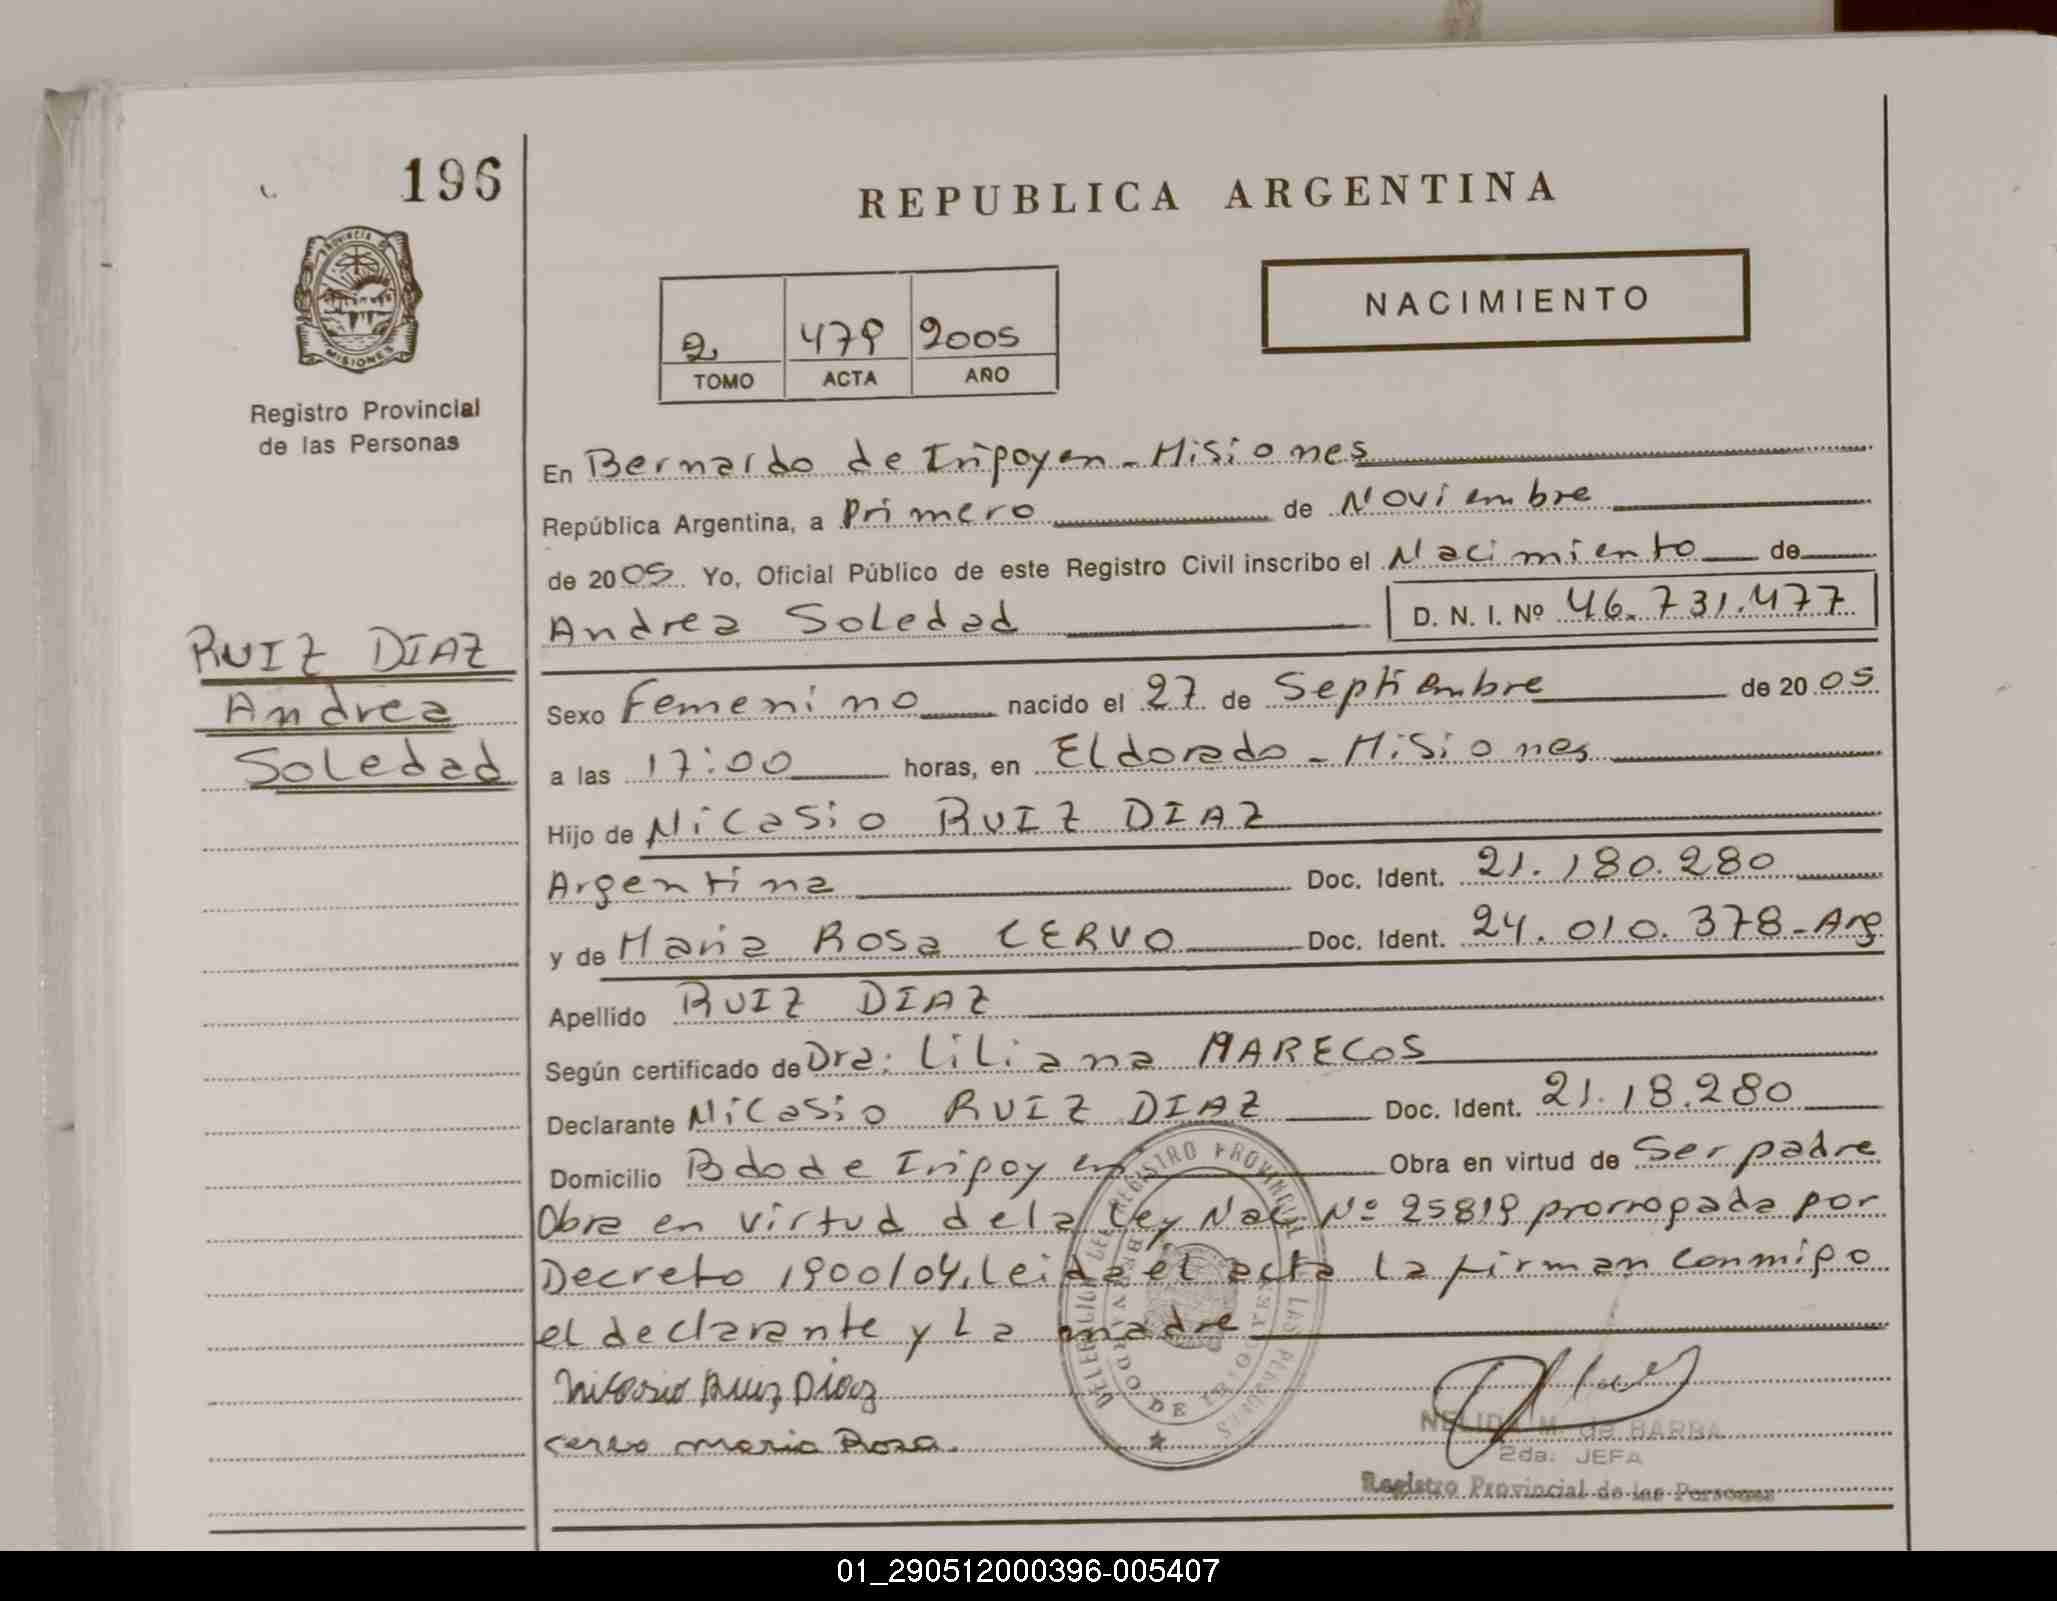 196
PROVINCIA DE
MISIONES
Registro Provincial
de las Personas
REPUBLICA ARGENTINA
NACIMIENTO
2 479 2005
TOMO ACTA AÑO
En Bernardo de Irigoyen - Misiones
República Argentina, a Primero de Noviembre
de 2005. Yo, Oficial Público de este Registro Civil inscribo el Nacimiento de
Andrea Soledad D. N. I. Nº 46.731.477
RUIZ DIAZ
Andrea
Soledad
Sexo Femenino nacido el 27 de Septiembre de 2005
a las 17:00 horas, en Eldorado - Misiones
Hijo de Nicasio RUIZ DIAZ
Argentina Doc. Ident. 21.180.280
y de Maria Rosa CERVO Doc. Ident. 24.010.378-Arg
Apellido RUIZ DIAZ
Según certificado de Dra: Liliana MARECOS
Declarante Nicasio RUIZ DIAZ Doc. Ident. 21.18.280
Domicilio Bdo de Irigoyen Obra en virtud de Ser padre
Obra en virtud de la Ley Nac. Nº 25819 prorrogada por
Decreto 1900/04, leida el acta la firman conmigo
el declarante y la madre
Nicasio Ruiz Diaz
Cervo Maria Rosa.
DELEGACION DEL REGISTRO PROVINCIAL DE LAS PERSONAS
NELIDA M. de BARBA
2da. JEFA
Registro Provincial de las Personas
01_290512000396-005407